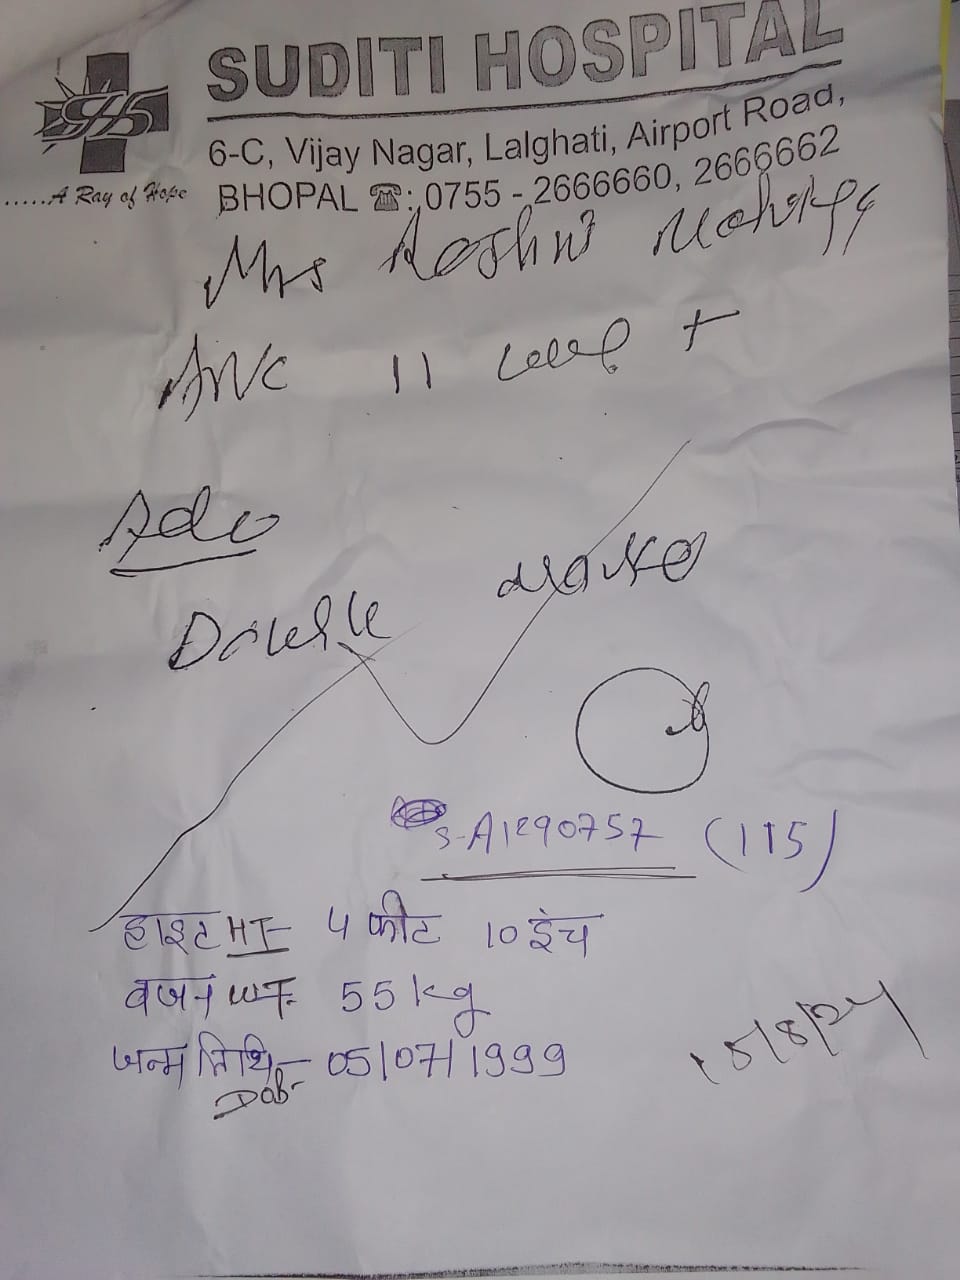 SUDITI HOSPITAL
6-C, Vijay Nagar, Lalghati, Airport Road,
.....A Ray of Hope
BHOPAL ☎: 0755 - 2666660, 2666662
Mrs
ANC 11 +
Adv
Double
S-A1290757 (115)
हाइट HT- 4 फीट 10 इंच
वजन WT- 55 kg
जन्म तिथि- 05/07/1999
DOB-
15/8/24